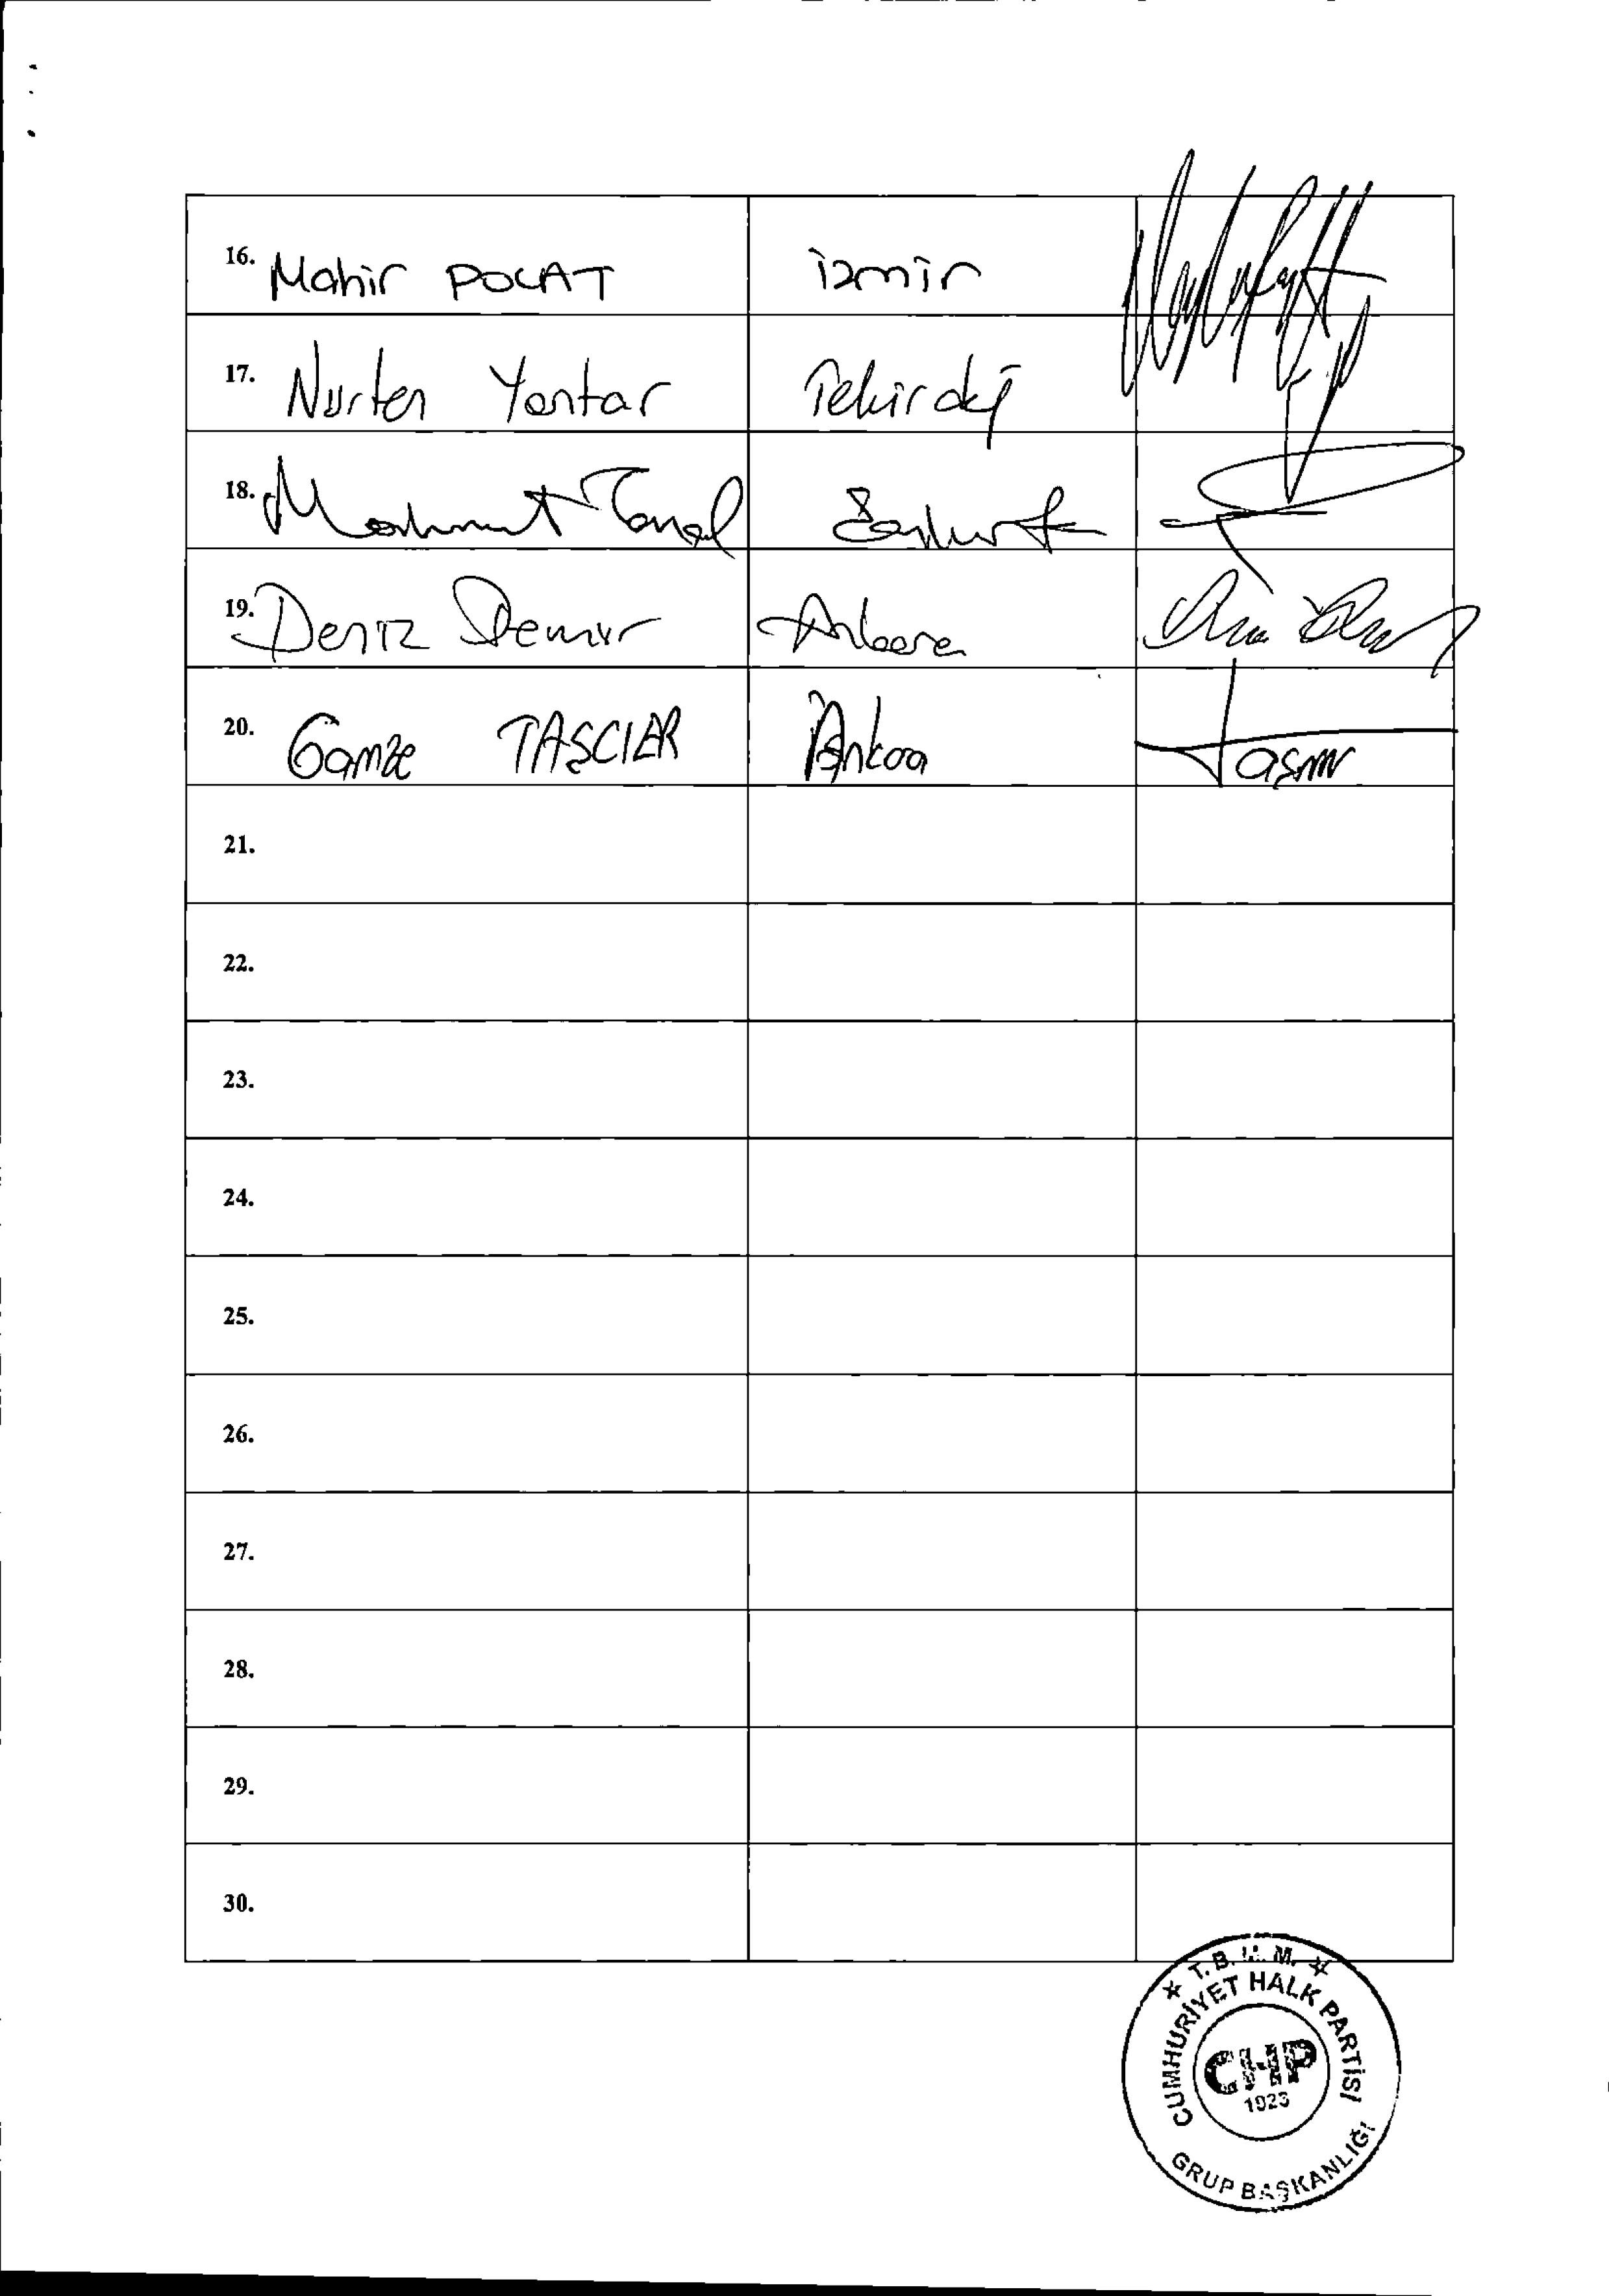 16. Mahir POLAT İzmir
17. Nurten Yontar Tekirdağ
18. Mahmut Tanal Şanlıurfa
19. Deniz Demir Ankara
20. Gamze TAŞCIER Ankara Taşcıer
21.
22.
23.
24.
25.
26.
27.
28.
29.
30.
T.B.M.M.
CUMHURİYET HALK PARTİSİ
CHP
1923
GRUP BAŞKANLIĞI